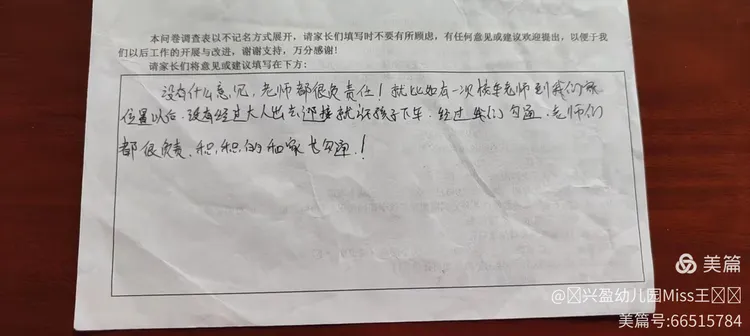 本问卷调查表以不记名方式展开，请家长们填写时不要有所顾虑，有任何意见或建议欢迎提出，以便于我
们以后工作的开展与改进，谢谢支持，万分感谢！
请家长们将意见或建议填写在下方：
没有什么意见，老师都很负责任！就比如有一次接车老师到我们家
位置以后，没有经过大人出去迎接就让孩子下车，经过我们沟通，老师们
都很负责，积积的和家长沟通！
美篇
@兴盈幼儿园Miss王
美篇号:66515784